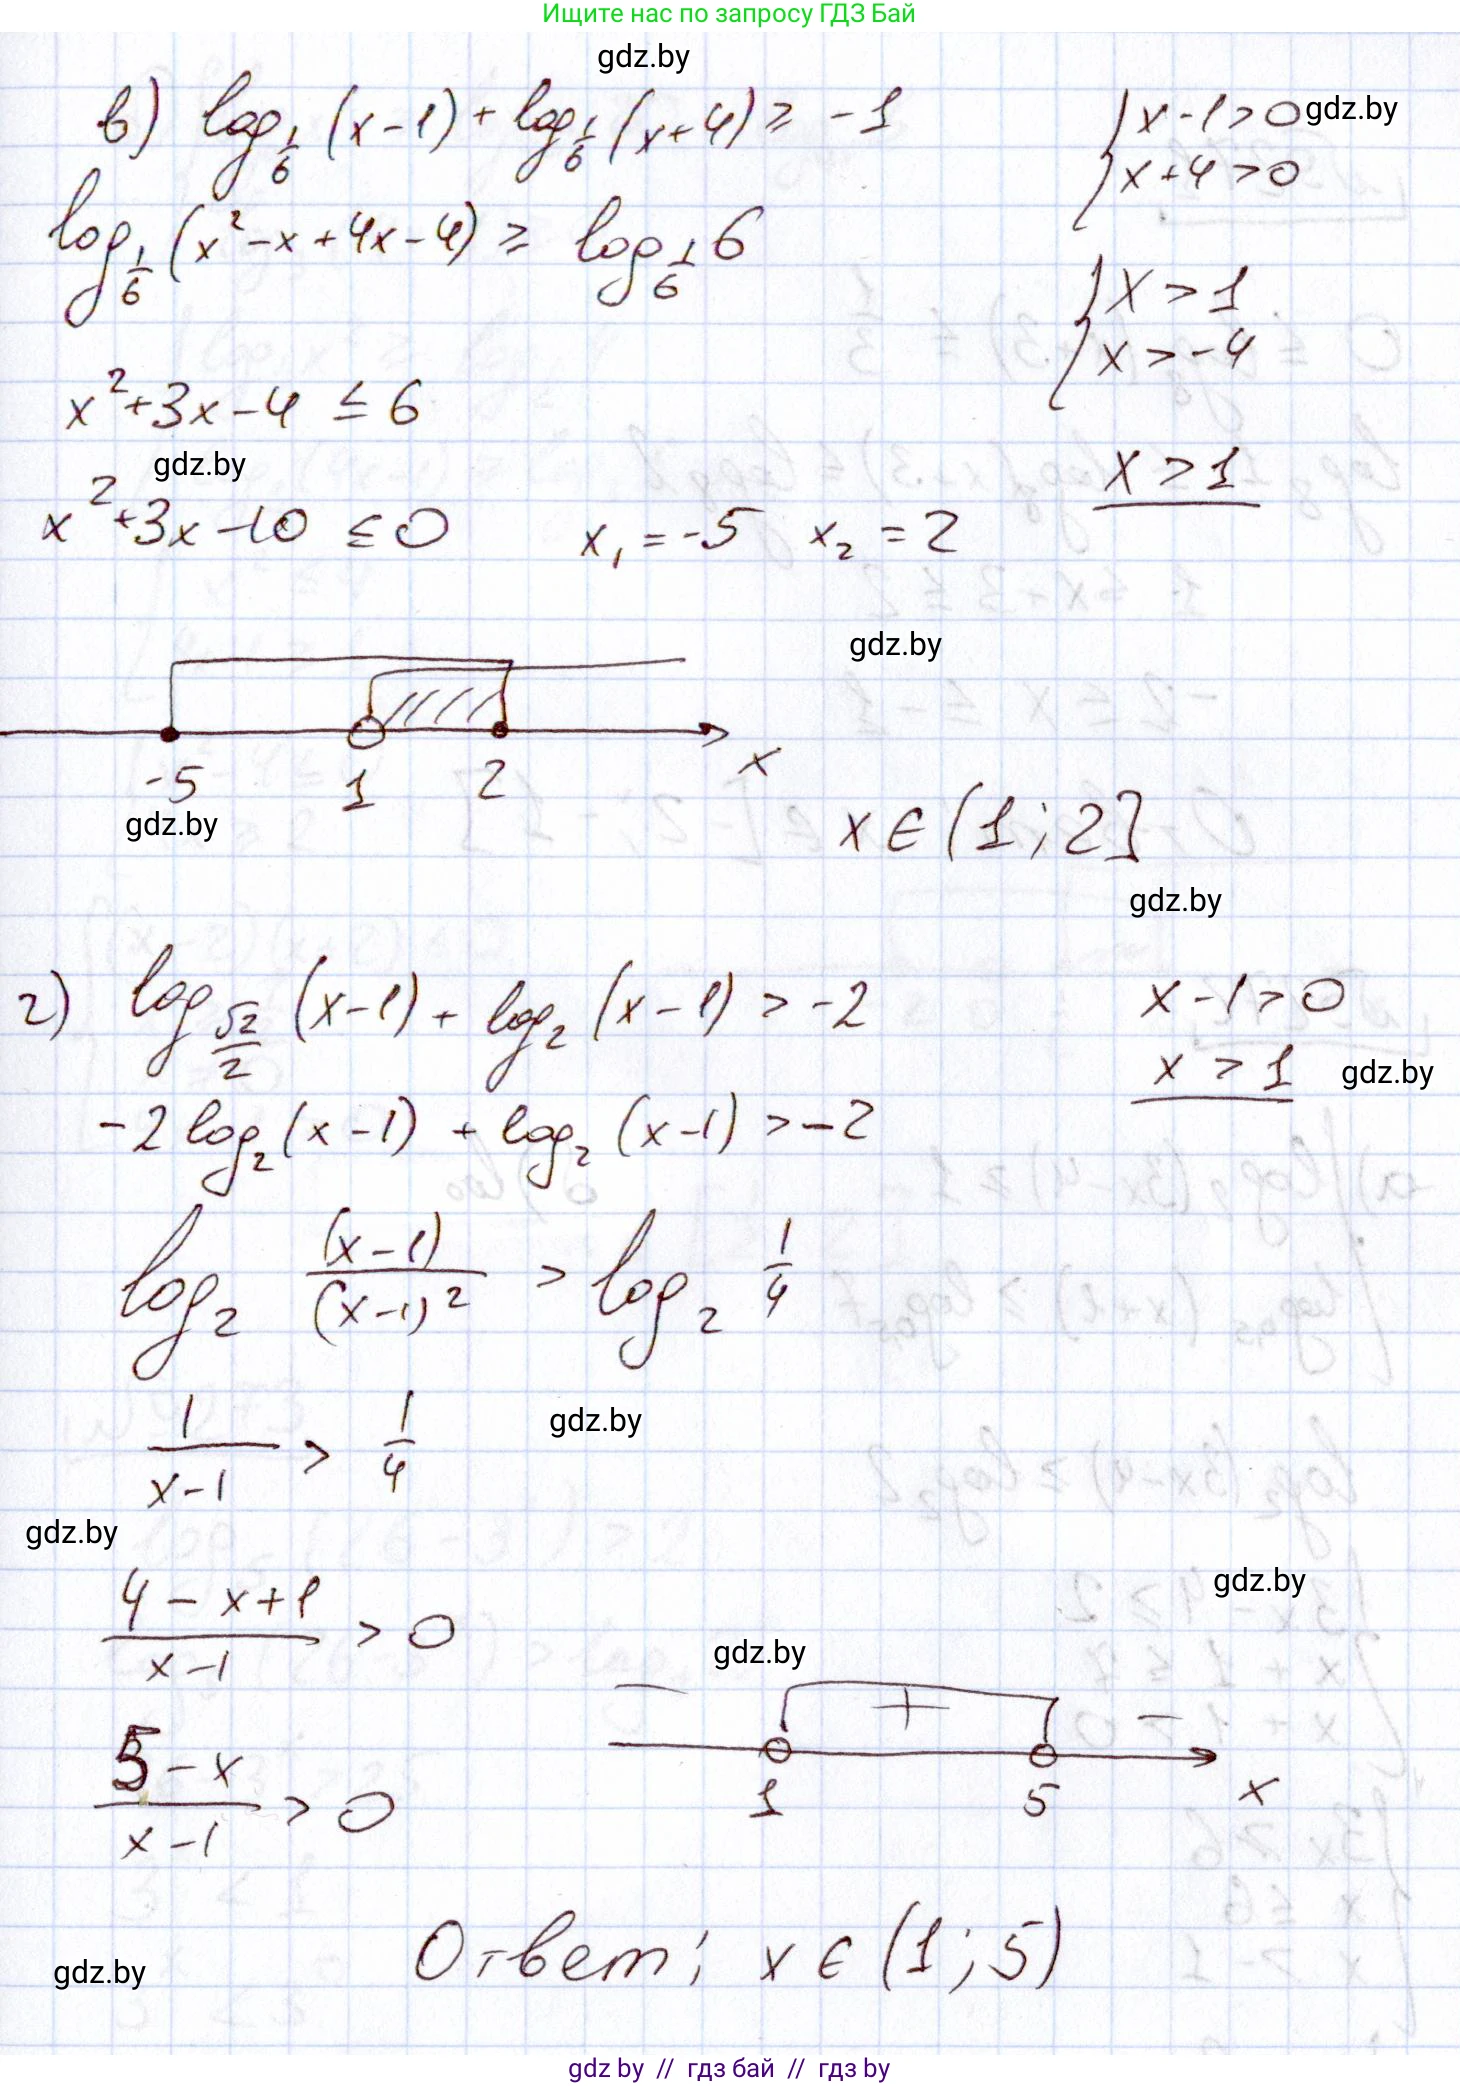 Ищите нас по запросу ГДЗ Бай
gdz.by
в) log_{1/6} (x-1) + log_{1/6} (x+4) ≥ -1
{ x-1>0
gdz.by
x+4>0
log_{1/6} (x²-x+4x-4) ≥ log_{1/6} 6
{ x>1
x>-4
x²+3x-4 ≤ 6
x>1
gdz.by
x²+3x-10 ≤ 0 x₁=-5 x₂=2
gdz.by
-5 1 2 x
gdz.by
x ∈ (1; 2]
gdz.by
г) log_{√2/2} (x-1) + log₂ (x-1) > -2
x-1>0
x > 1
gdz.by
-2 log₂ (x-1) + log₂ (x-1) > -2
log₂ (x-1)/(x-1)² > log₂ 1/4
1/(x-1) > 1/4
gdz.by
gdz.by
gdz.by
(4-x+1)/(x-1) > 0
gdz.by
− + −
1 5 x
(5-x)/(x-1) > 0
Ответ: x ∈ (1; 5)
gdz.by
gdz by // гдз бай // гдз by